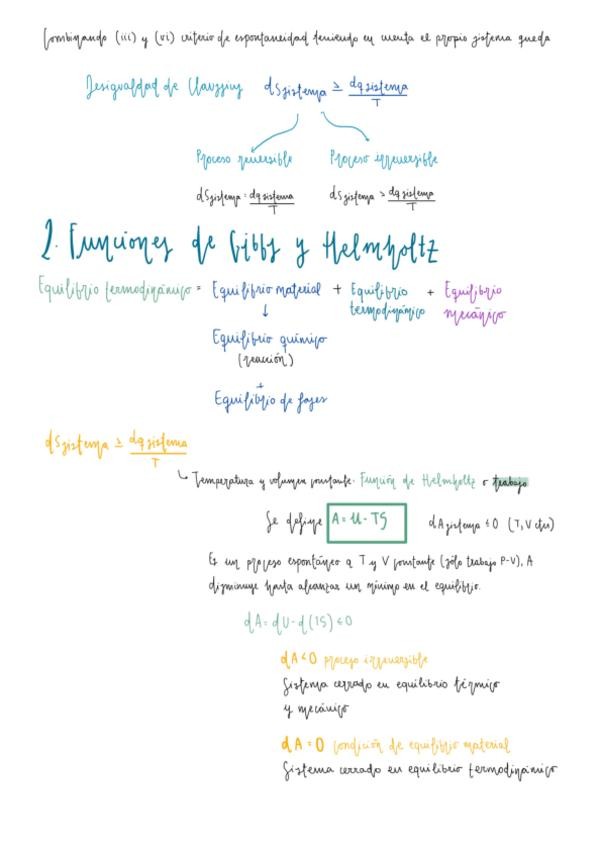 Combinando (iii) y (vi) criterio de espontaneidad teniendo en cuenta el propio sistema queda
Desigualdad de Claussius dSsistema ≥ dqsistema/T
Proceso reversible Proceso irreversible
dSsistema = dqsistema/T dSsistema > dqsistema/T
2. Funciones de Gibbs y Helmholtz
Equilibrio termodinámico = Equilibrio material + Equilibrio termodinámico + Equilibrio mecánico
↓
Equilibrio químico
(reacción)
+
Equilibrio de fases
dSsistema ≥ dqsistema/T
↳ Temperatura y volumen constante. Función de Helmholtz o trabajo
Se define A = U - TS dAsistema ≤ 0 (T, V ctes)
Es un proceso espontáneo a T y V constante (sólo trabajo P-V), A
disminuye hasta alcanzar un mínimo en el equilibrio.
dA = dU - d(TS) ≤ 0
dA < 0 proceso irreversible
Sistema cerrado en equilibrio térmico
y mecánico
dA = 0 condición de equilibrio material
Sistema cerrado en equilibrio termodinámico